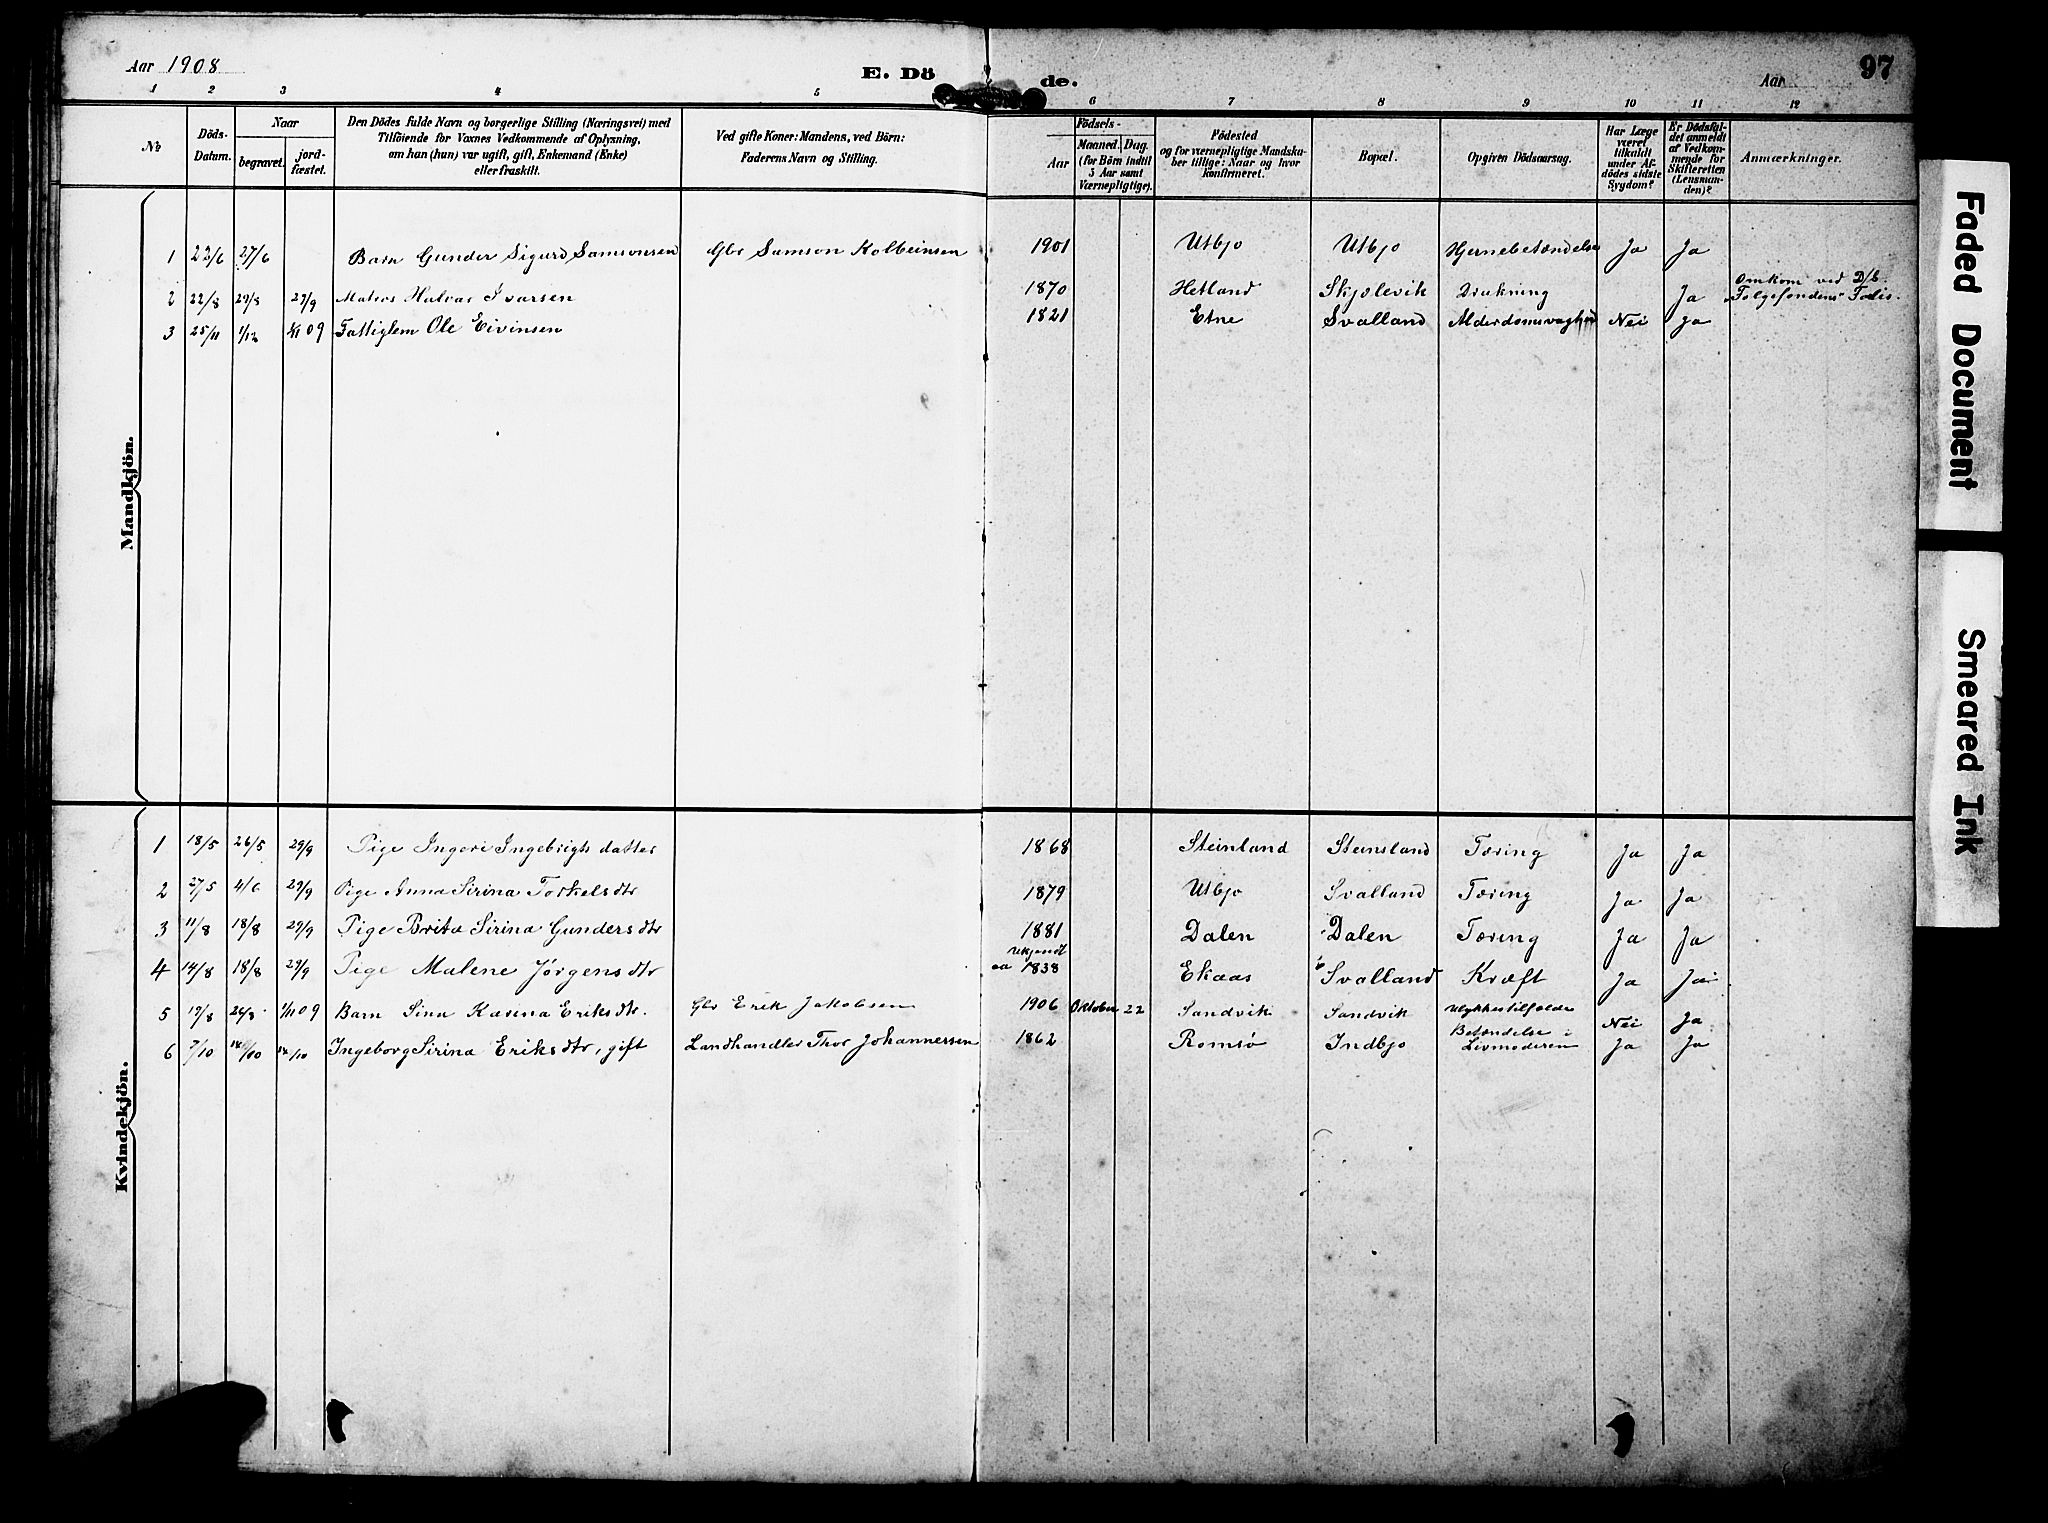 Aar 1908
E. Dö
de.
Aar
97
1 2 3 4 5 6 7 8 9 10 11 12
No
Döds-
Datum.
Naar
begravet.
jord-
fæstet.
Den Dödes fulde Navn og borgerlige Stilling (Næringsvei) med
Tilföiende for Voxnes Vedkommende af Oplysning,
om han (hun) var ugift, gift, Enkemand (Enke)
eller fraskilt.
Ved gifte Koner: Mandens, ved Börn:
Faderens Navn og Stilling.
Födsels-
Aar
Maaned.
Dag.
(for Börn indtil
5 Aar samt
Værnepligtige).
Födested
og for værnepligtige Mandska-
ber tillige: Naar og hvor
konfirmeret.
Bopæl.
Opgiven Dödsaarsag.
Har Læge
været
tilkaldt
under Af-
dödes sidste
Sygdom?
Er Dödsfal-
det anmeldt
af Vedkom-
mende for
Skifteretten
(Lensman-
den)?
Anmærkninger.
Mandkjön.
1 22/6 27/6 Barn Gunder Sigurd Samsonsen Gbr Samson Kolbeinsen 1901 Utbjo Utbjo Hjernebetændelse Ja Ja
2 22/8 29/8 29/9 Matros Halvar Ivarsen 1870 Hetland Skjolevik Drukning Ja Omkom ved D/S.
"Folgefondens" Forlis.
3 25/11 1/12 09 Fattiglem Ole Eivinsen 1821 Etne Svalland Alderdomsvaghed Nei Ja
Kvindekjön.
1 18/5 26/5 29/9 Pige Ingeri Ingebrigts datter 1868 Steinland Steinsland Tæring Ja Ja
2 27/5 4/6 29/9 Pige Anna Sirina Torkelsdtr 1879 Utbjo Svalland Tæring Ja Ja
3 11/8 18/8 29/9 Pige Brita Sirina Gundersdtr 1881 Dalen Dalen Tæring Ja Ja
Ukjendt
4 14/8 18/8 29/9 Pige Malene Jørgensdtr ca 1838 Ekaas Svalland Kræft Ja Ja
5 19/8 26/8 09 Barn Sina Karina Eriksdtr. Gbr Erik Jakobsen 1906 Oktober 22 Sandvik Sandvik Ulykkestilfælde Nei Ja
6 7/10 14/10 14/10 Ingeborg Sirina Eriksdtr, gift Landhandler Thor Johannessen 1862 Romsø Indbjo Betændelse i
Livmoderen Ja Ja
Faded Document
Smeared Ink